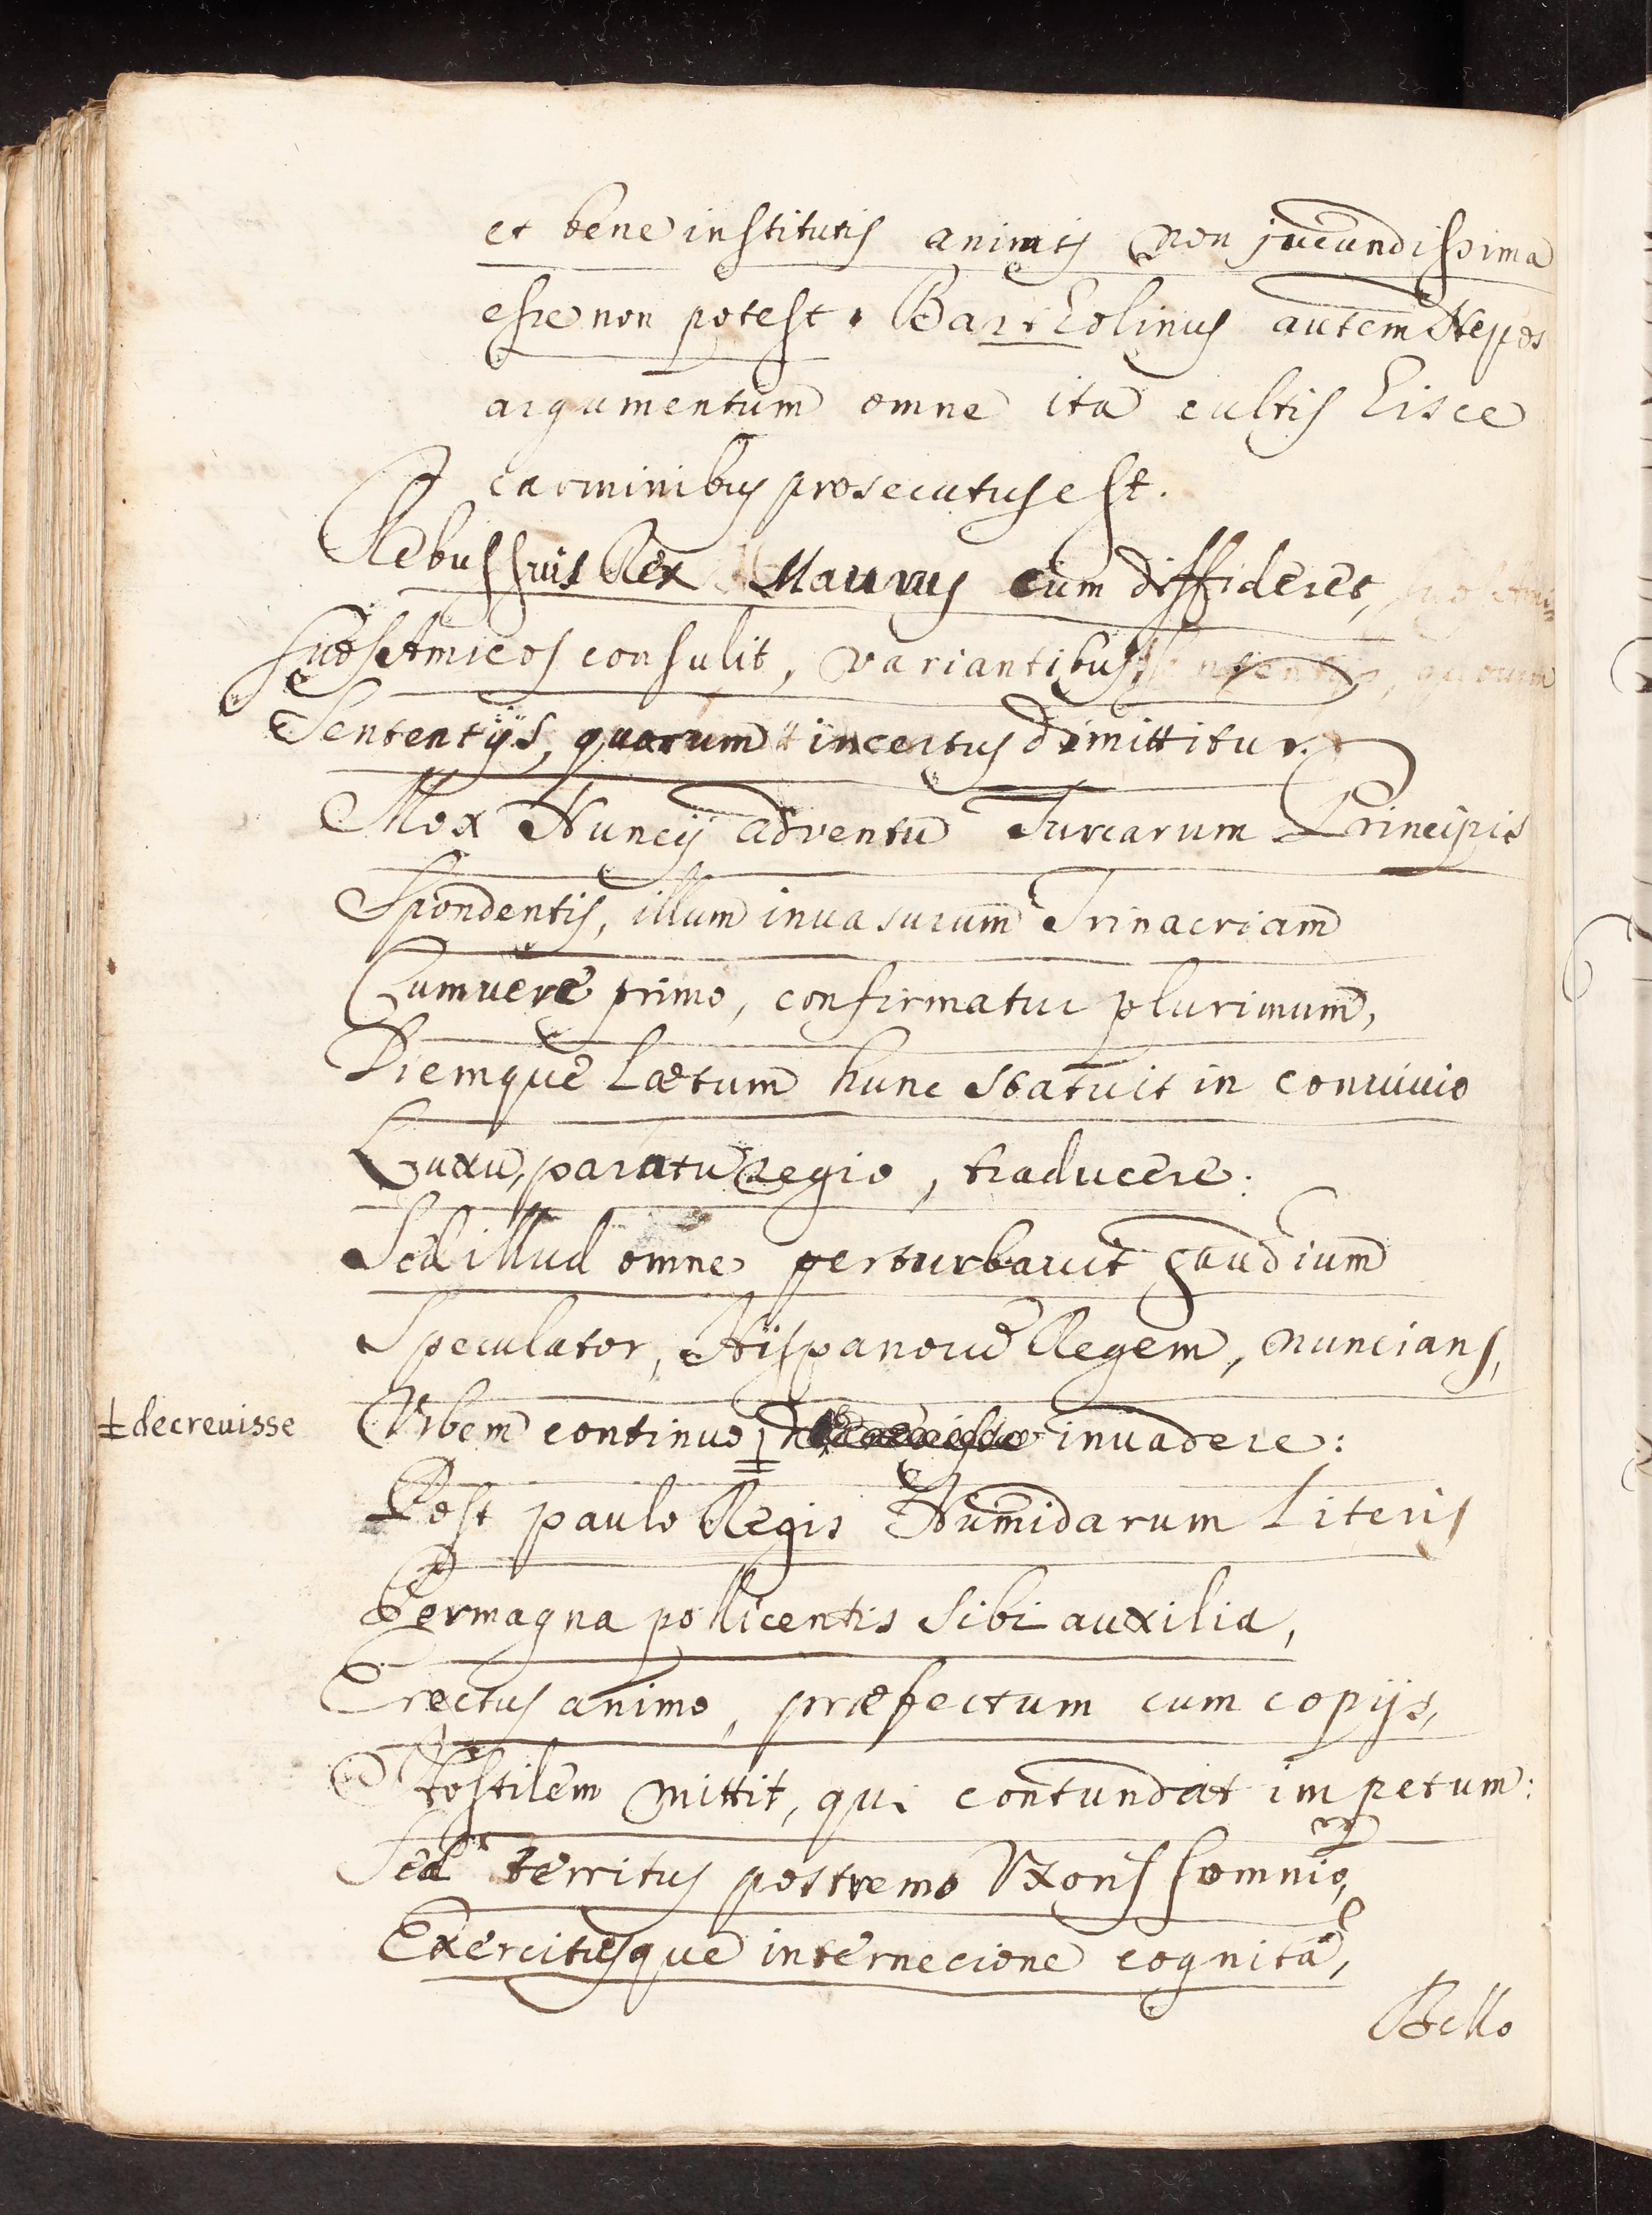 et bene institutis animis non jucundissima
esse non potest. Bartholinus autem Nepos
argumentum omne ita cultis hisce
carminibus prosecutus est.
Rebus suis Rex Maurus cum diffideret,
suos Amicos consulit, variantibus
Sententijs, quorum incertus dimittitur.
Mox Nuncij adventu Turcarum Principis
Spondentis, illum invasurum Trinacriam
Cum vere primo, confirmatur plurimum,
Diemque Lætum hunc statuit in conuiuio
Luxu, paratu Regio, traducere:
Sed illud omne perturbauit gaudium
Speculator, Hispanorū Regem, nuncians,
Vrbem continuo invadere:
‡decreuisse
Post paulo Regis Numidarum Literis
Permagna pollicentis sibi auxilia,
Erectus animo, præfectum cum copijs,
Hostilem mittit, qui contundat impetum:
Sed territus postremo Vxoris somnio,
Exercitusque internecione cognitâ,
Bello